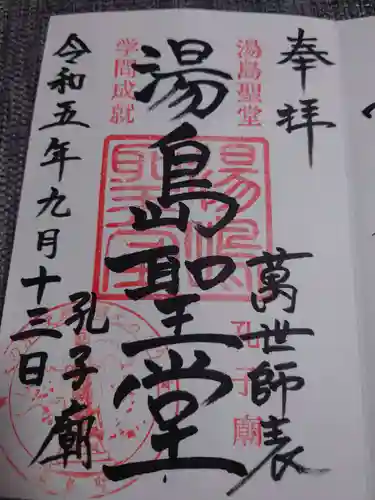 奉拝
萬世師表
湯島聖堂
孔子廟
湯島聖堂
湯島聖堂
学問成就
孔子廟
令和五年九月十三日